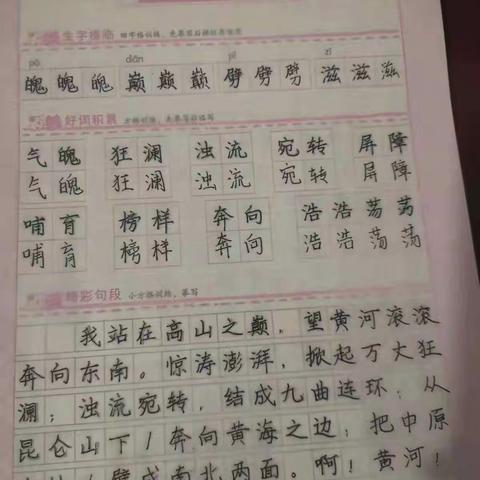 生字描临 田字格训练,先摹写后描红再临写
pò diān pī zī
魄魄魄 巅巅巅 劈劈劈 滋滋滋
好词积累
气魄 狂澜 浊流 宛转 屏障
气魄 狂澜 浊流 宛转 屏障
哺育 榜样 奔向 浩浩荡荡
哺育 榜样 奔向 浩浩荡荡
精彩句段 小方格训练,摹写
我站在高山之巅,望黄河滚滚
奔向东南。惊涛澎湃,掀起万丈狂
澜;浊流宛转,结成九曲连环;从
昆仑山下/奔向黄海之边;把中原
劈成南北两面。啊!黄河!